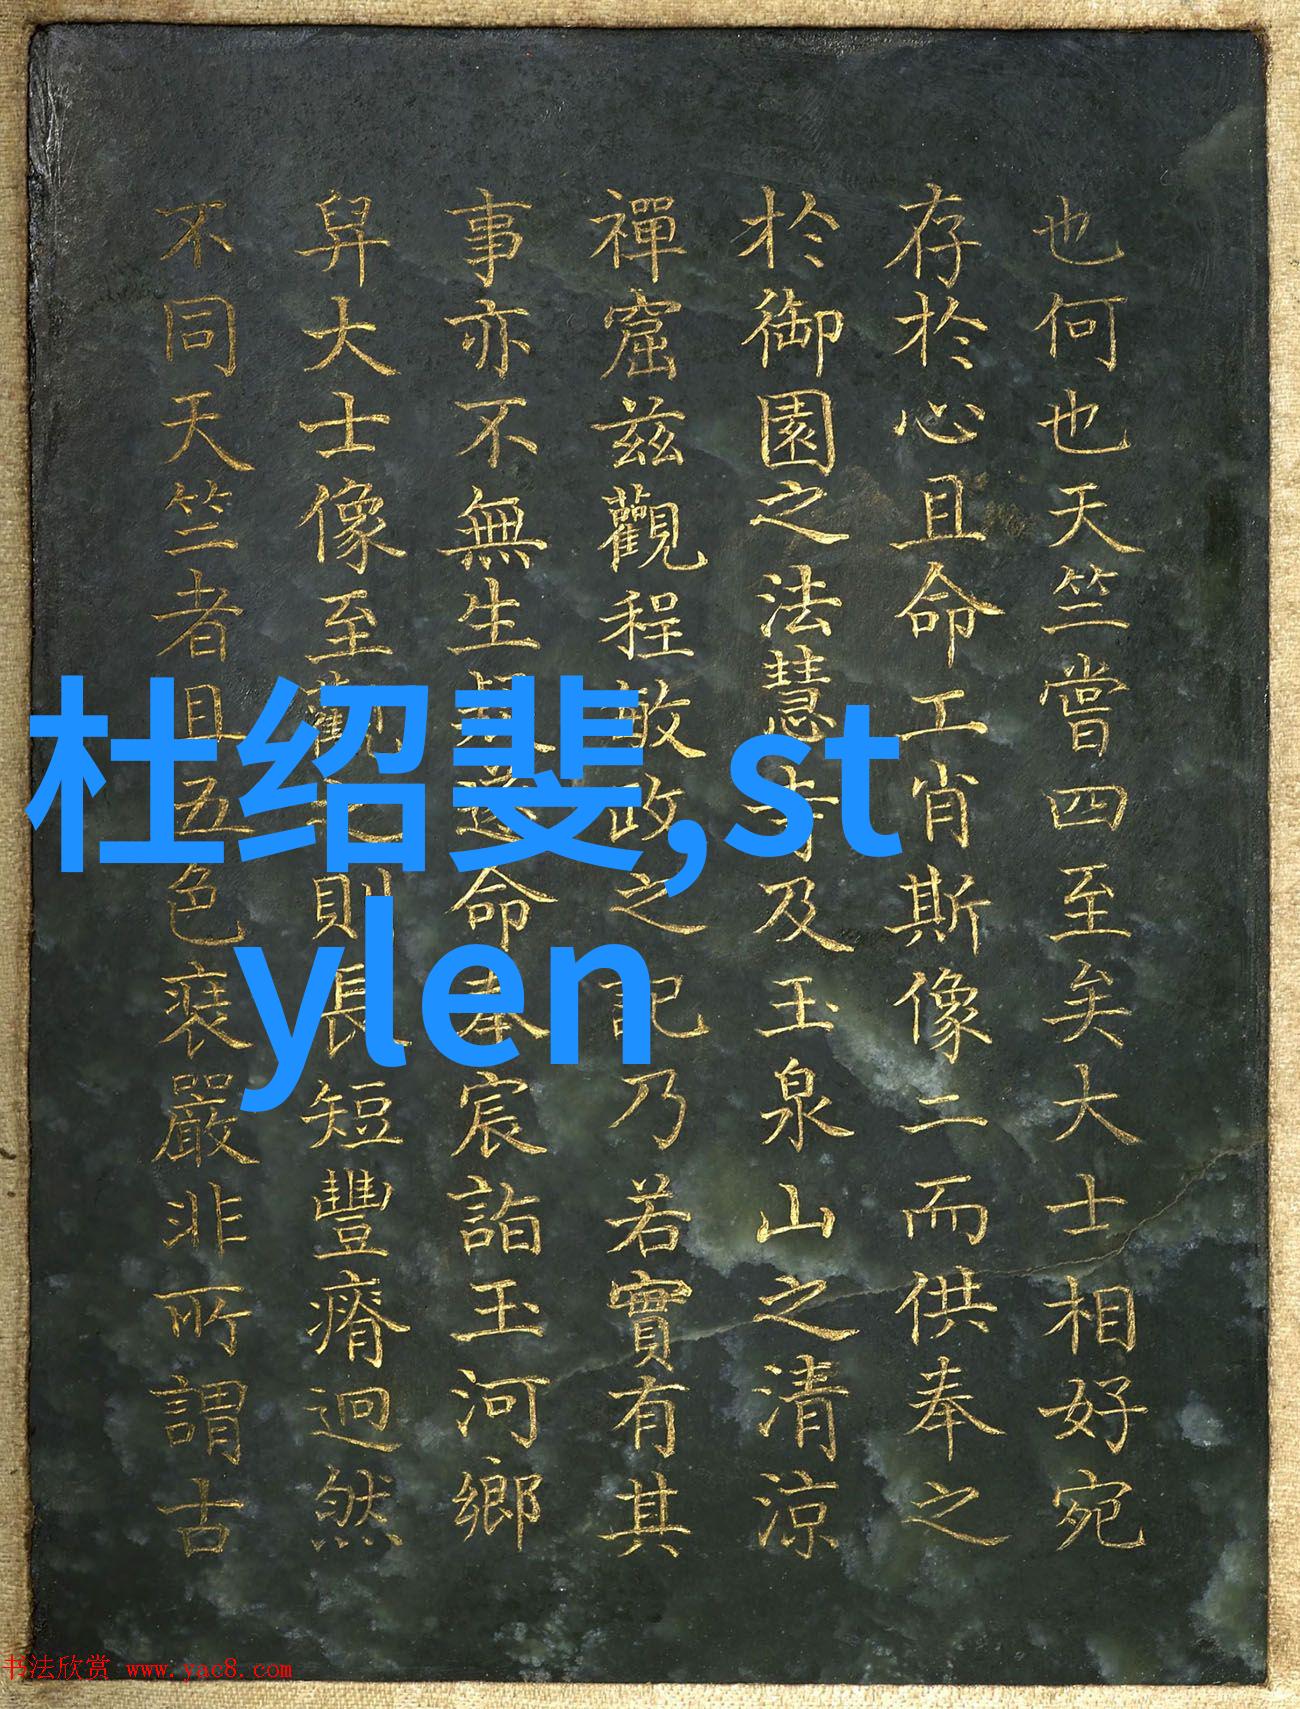 也何也天竺嘗四至矣大士相好宛
存於心且命工肖斯像二而供奉之
於御園之法慧寺及玉泉山之清涼
禪窟茲觀程敏政之記乃若實有其
事亦不無生遂命奉宸詣玉河鄉
舁大士像至觀之則長短豐瘠迥然
不同天竺者且五色裝嚴非所謂古
杜绍斐,st
ylen
书法欣赏 www.yac8.com